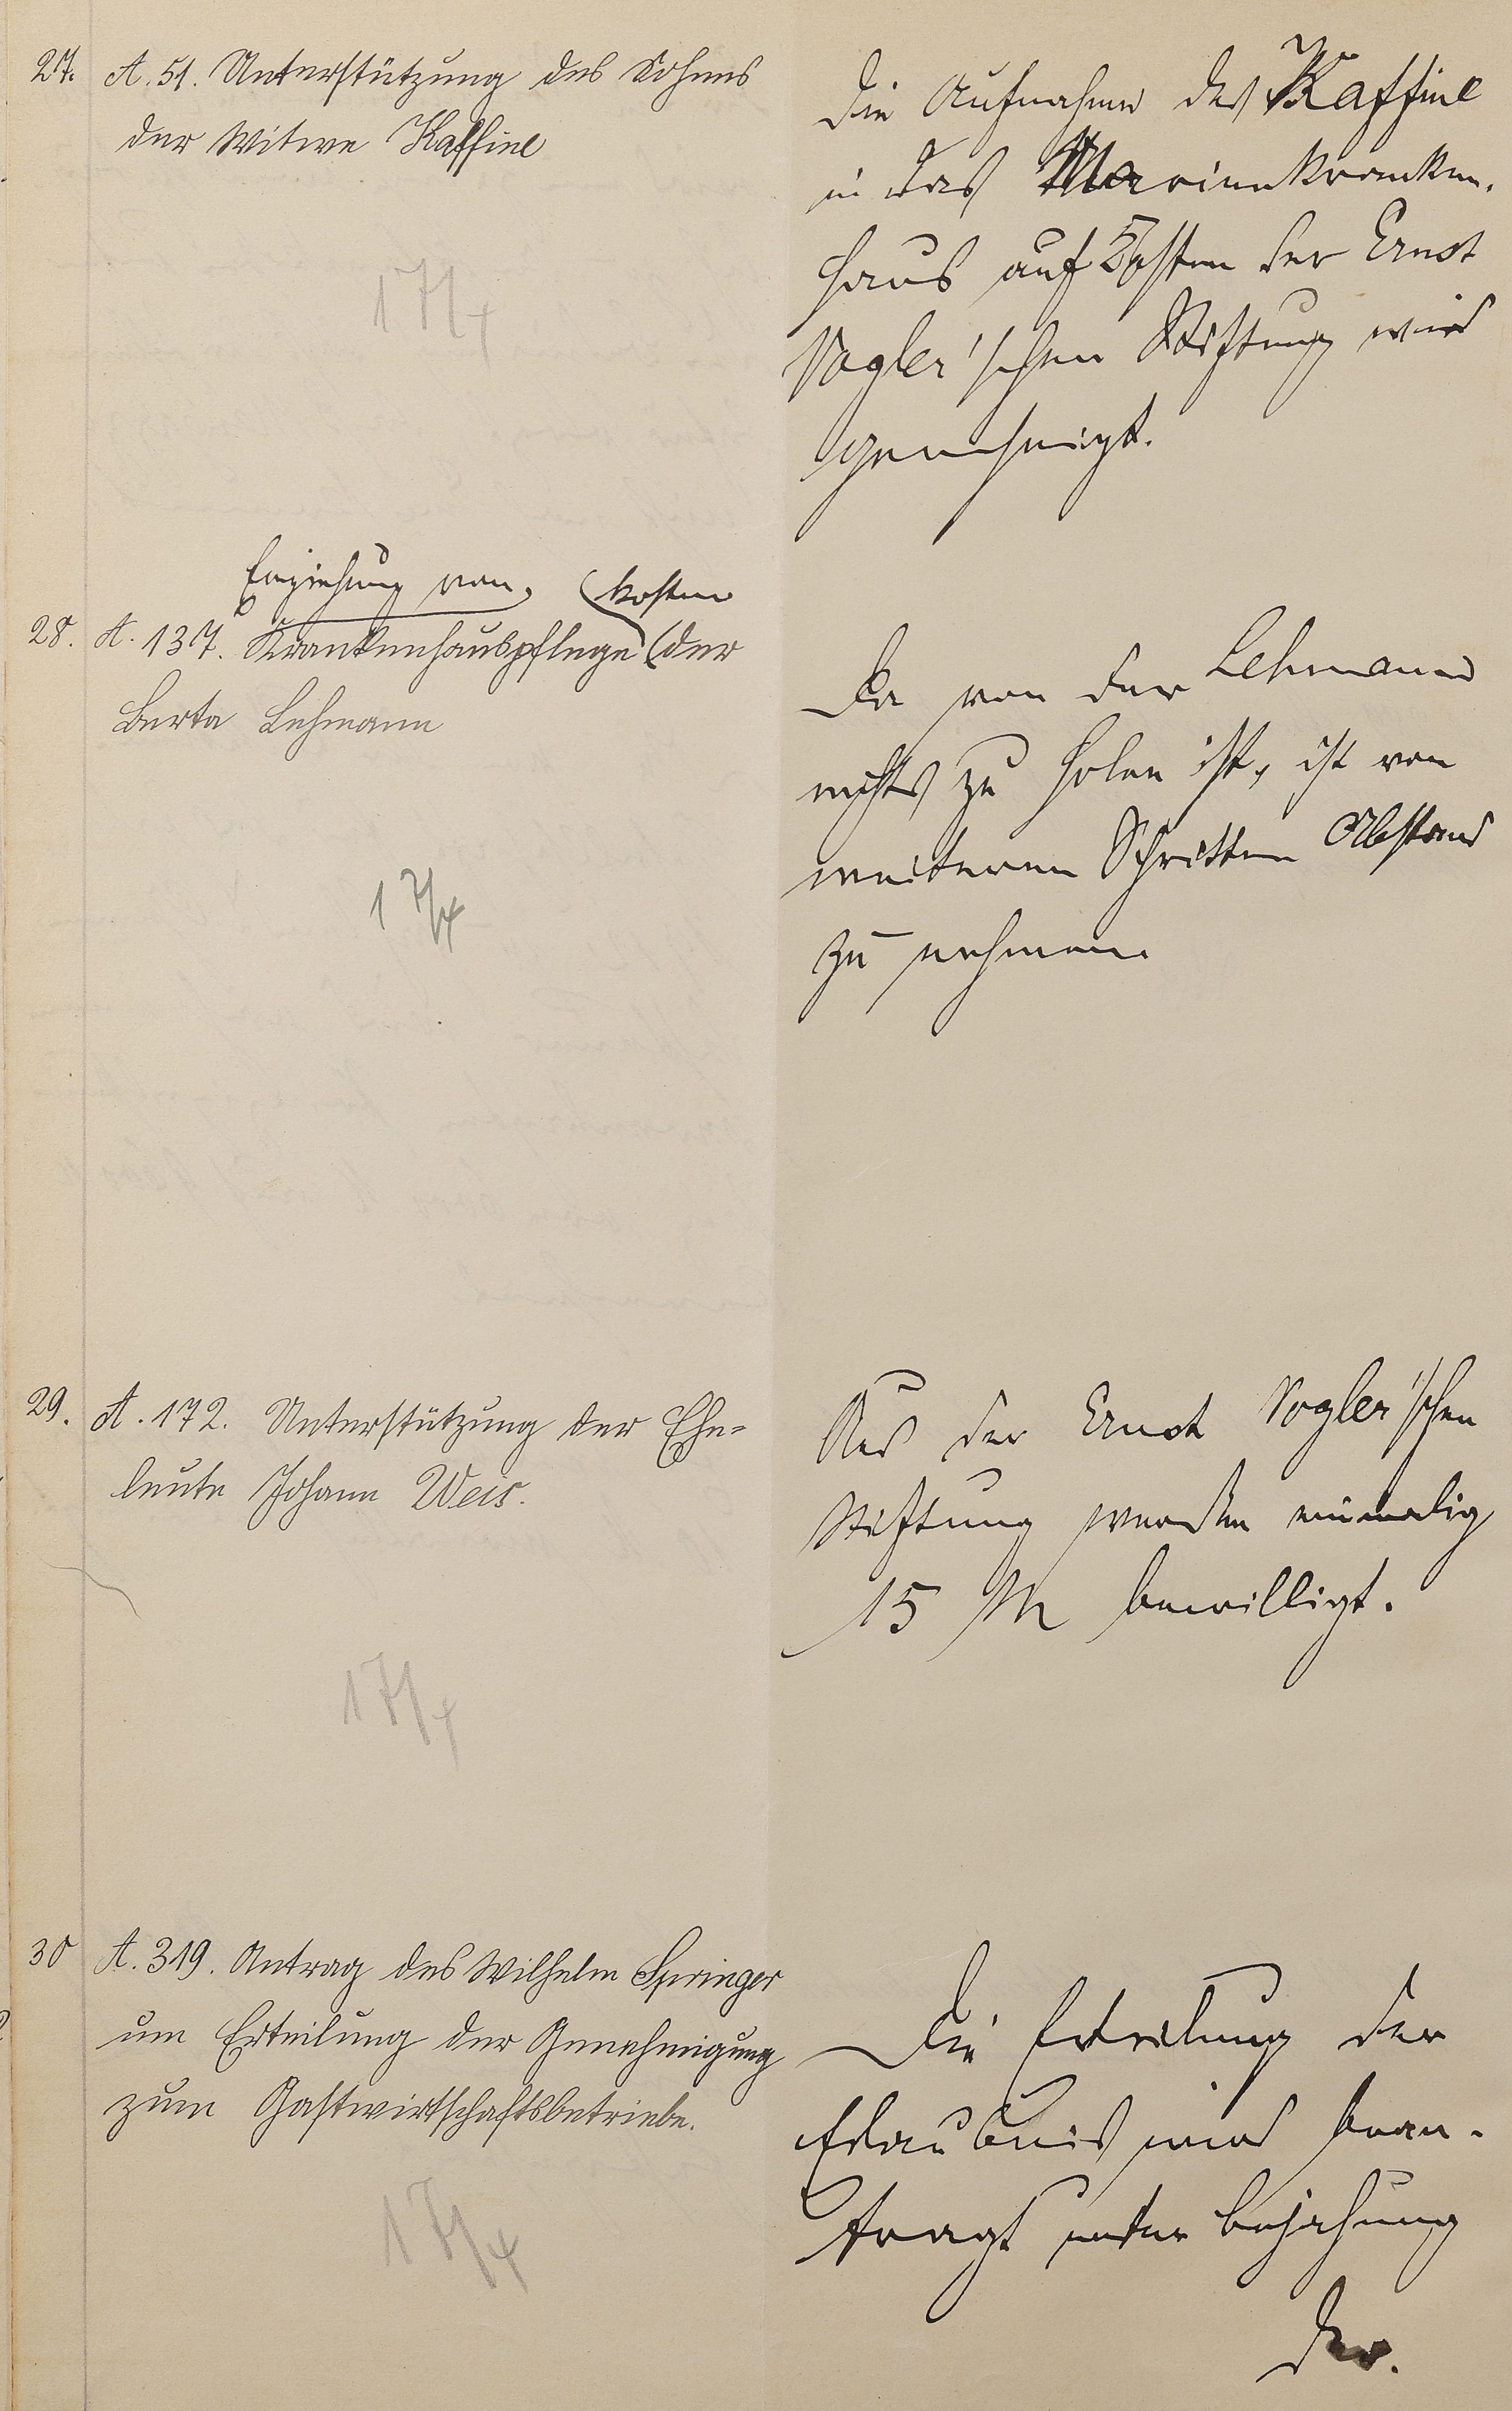 27. A. 51. Unterstützung des Sohnes
der Witwe Kaffine
17/4
Die Aufnahme des Kaffine
in das Marienkranken-
haus auf Kosten der Ernst
Vogler'schen Stiftung wird
genehmigt.
Einziehung von kosten
28. A. 137. Krankenhauspflege der
Berta Lehmann
17/4
Da von der Lehmann
nichts zu holen ist, ist von
weiteren Schritten Abstand
zu nehmen.
29. A. 172. Unterstützung der Ehe-
leute Johann Weis.
17/4
Aus der Ernst Vogler'schen
Stiftung werden einmalig
15 M bewilligt.
30 A. 319. Antrag des Wilhelm Springer
um Erteilung der Genehmigung
zum Gastwirtschaftsbetriebe.
17/4
Die Erteilung der
Erlaubnis wird bean-
tragt unter Bejahung
der